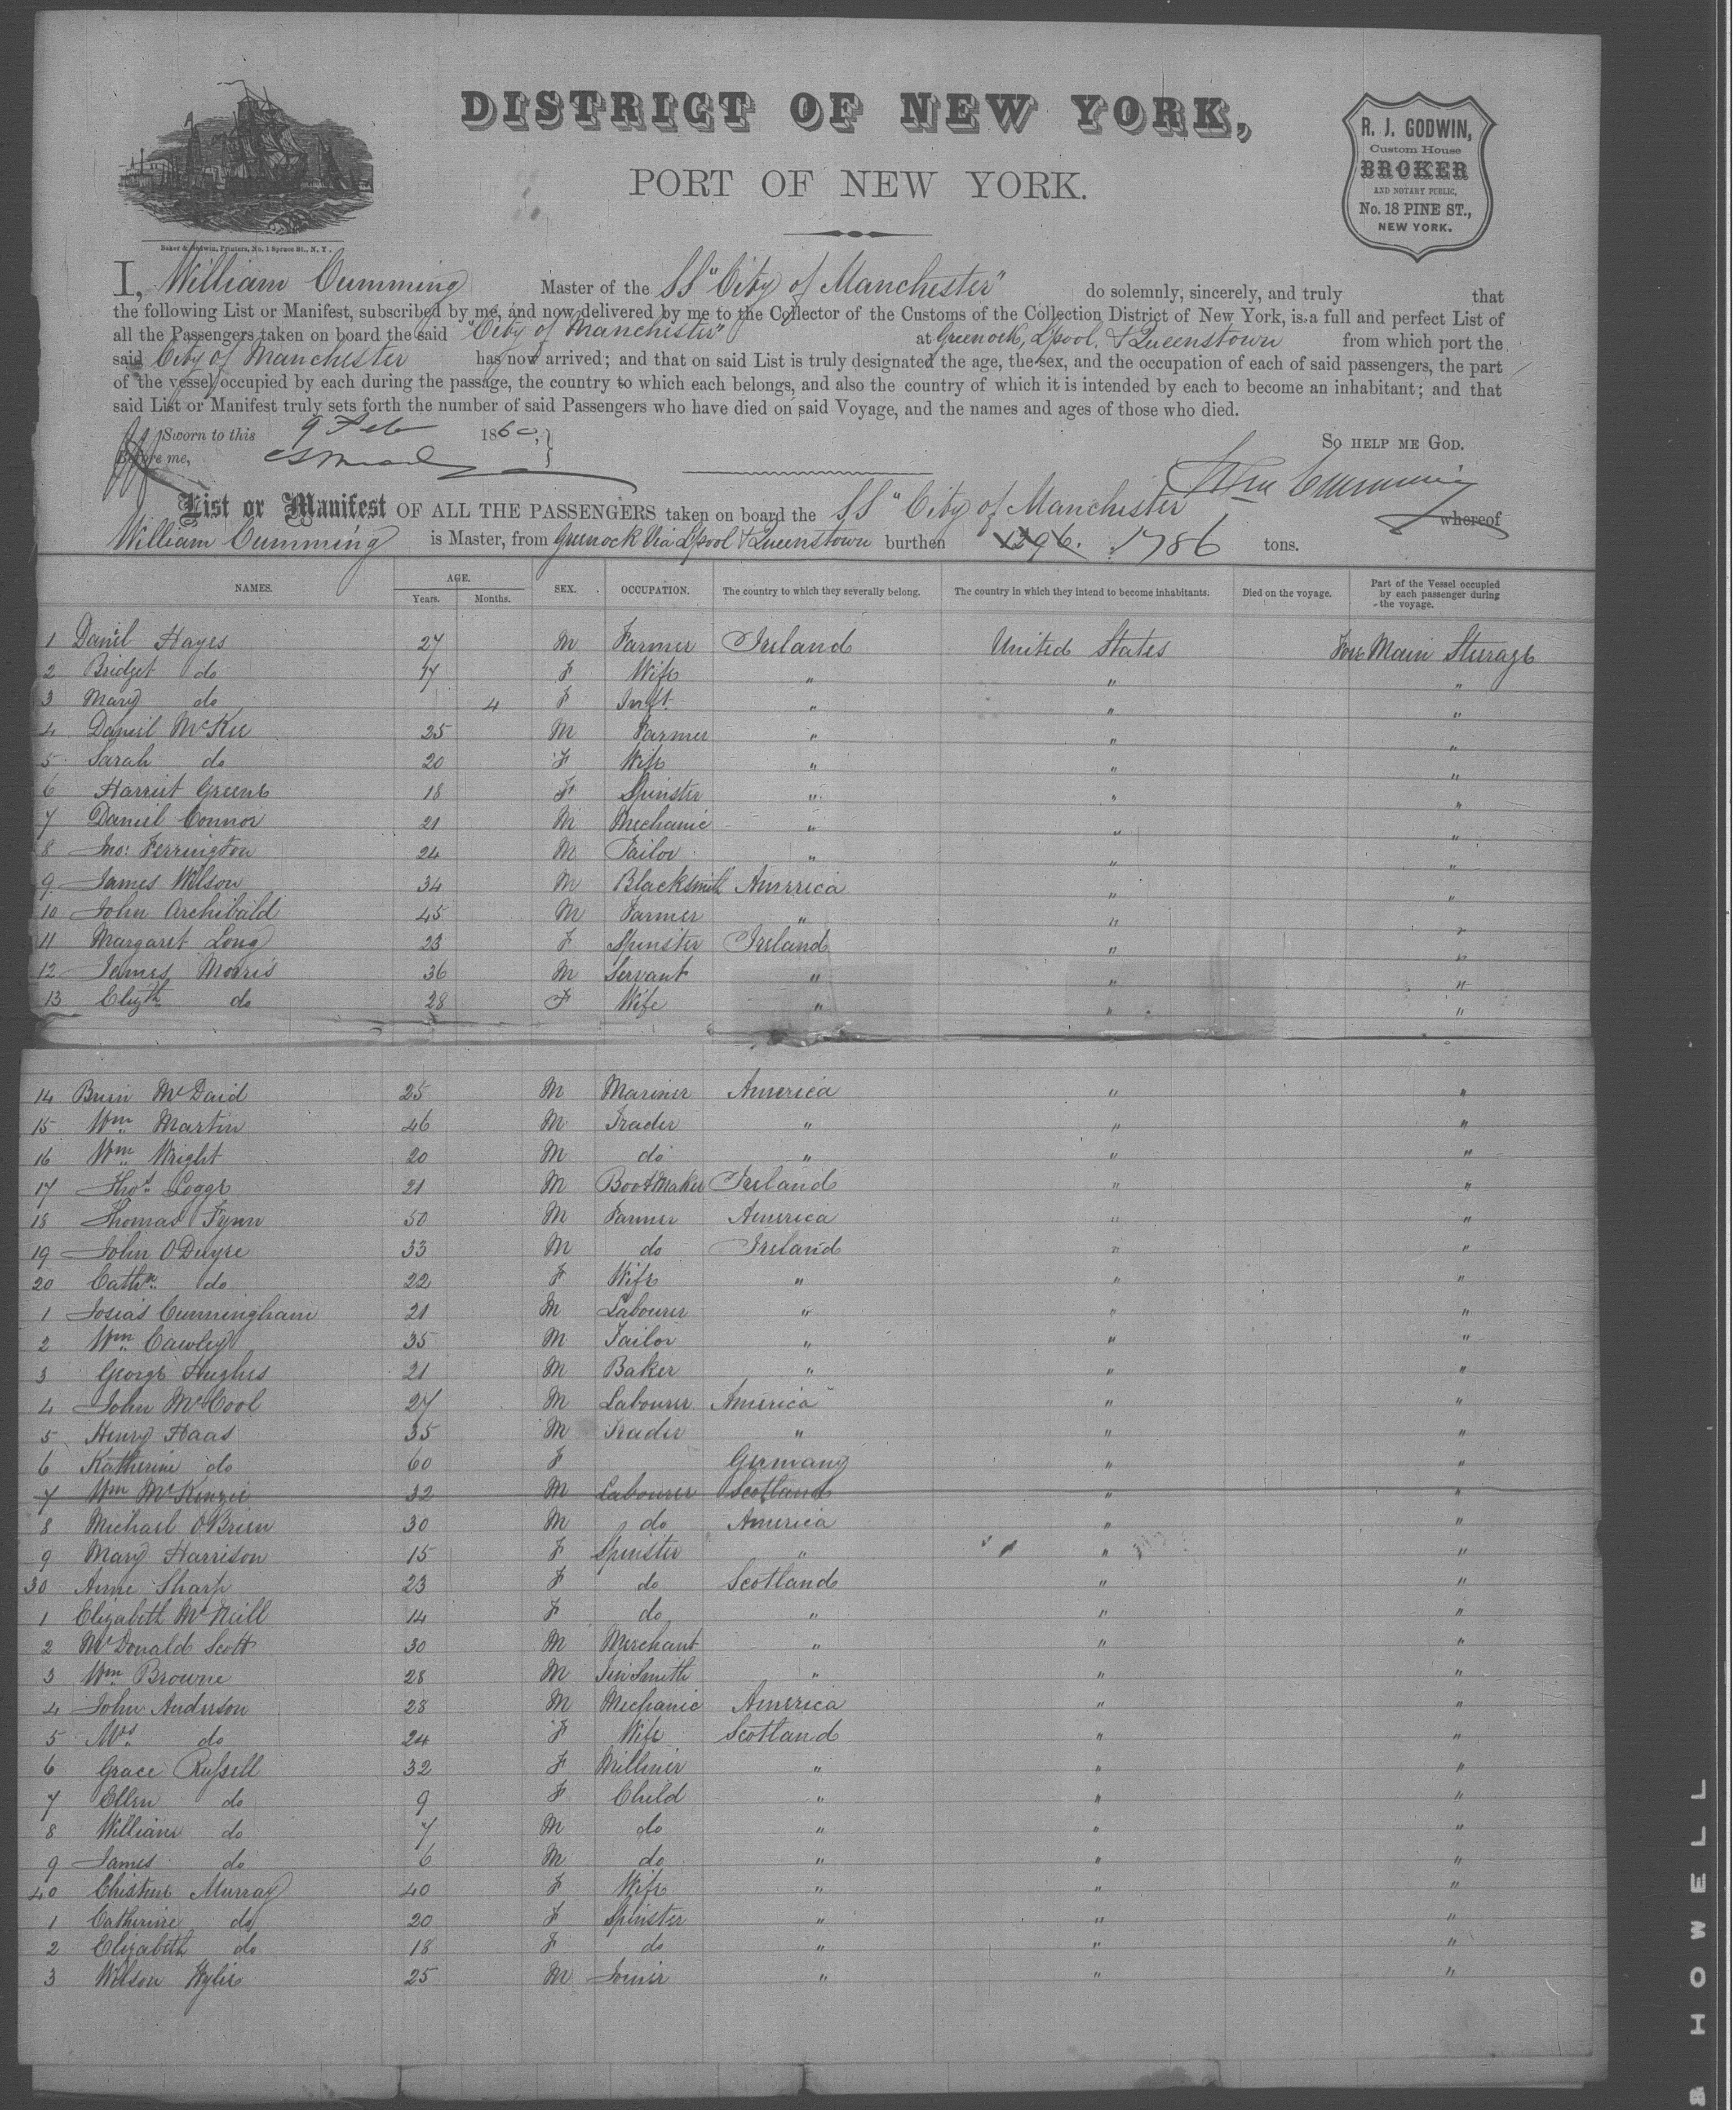 DISTRICT OF NEW YORK,
PORT OF NEW YORK.
R. J. GODWIN,
Custom House
BROKER
AND NOTARY PUBLIC,
No. 18 PINE ST.,
NEW YORK.
Baker & Godwin, Printers, No. 1 Spruce St., N. Y.
I, William Cumming Master of the SS "City of Manchester" do solemnly, sincerely, and truly that
the following List or Manifest, subscribed by me, and now delivered by me to the Collector of the Customs of the Collection District of New York, is a full and perfect List of
all the Passengers taken on board the said "City of Manchester" at Greenock, L'pool, & Queenstown from which port the
said City of Manchester has now arrived; and that on said List is truly designated the age, the sex, and the occupation of each of said passengers, the part
of the vessel occupied by each during the passage, the country to which each belongs, and also the country of which it is intended by each to become an inhabitant; and that
said List or Manifest truly sets forth the number of said Passengers who have died on said Voyage, and the names and ages of those who died.
Sworn to this 9 Feb 1860, SO HELP ME GOD.
Before me, Wm Cumming
List or Manifest OF ALL THE PASSENGERS taken on board the SS "City of Manchester whereof
William Cumming is Master, from Greenock Via L'pool & Queenstown burthen 1296. 1786 tons.
NAMES. AGE. Years. Months. SEX. OCCUPATION. The country to which they severally belong. The country in which they intend to become inhabitants. Died on the voyage. Part of the Vessel occupied by each passenger during the voyage.
1 Daniel Hayes 27 M Farmer Ireland United States Fore Main Steerage
2 Bridget do 17 F Wife " " "
3 Mary do 4 F Inft. " " "
4 Daniel McKee 25 M Farmer " " "
5 Sarah do 20 F Wife " " "
6 Harriet Greene 18 F Spinster " " "
7 Daniel Connor 21 M Mechanic " " "
8 Jno: Ferrington 24 M Tailor " " "
9 James Wilson 34 M Blacksmith America " "
10 John Archibald 45 M Farmer " " "
11 Margaret Long 23 F Spinster Ireland " "
12 James Morris 36 M Servant " " "
13 Elizth do 28 F Wife " " "
14 McDaid 25 M Mariner America " "
15 Wm Martin 46 M Trader " " "
16 Wm Wright 20 M do " " "
17 Thos Logge 21 M BootMaker Ireland " "
18 Thomas Fynn 50 M Farmer America " "
19 John ODwyre 33 M do Ireland " "
20 Cathn do 22 F Wife " " "
1 Josias Cunningham 21 M Labourer " " "
2 Wm Cawley 35 M Tailor " " "
3 George Hughes 21 M Baker " " "
4 John McCool 27 M Labourer America " "
5 Henry Haas 35 M Trader " " "
6 Katherine do 60 F Germany " "
7 Wm McKenzie 32 M Labourer Scotland " "
8 Michael OBrien 30 M do America " "
9 Mary Harrison 15 F Spinster " " "
30 Anne Sharp 23 F do Scotland " "
1 Elizabeth McNeill 14 F do " " "
2 McDonald Scott 30 M Merchant " " "
3 Wm Browne 28 M TinSmith " " "
4 John Anderson 28 M Mechanic America " "
5 Mrs do 24 F Wife Scotland " "
6 Grace Russell 32 F Milliner " " "
7 Ellen do 9 F Child " " "
8 William do 7 M do " " "
9 James do 6 M do " " "
40 Christine Murray 40 F Wife " " "
1 Catherine do 20 F Spinster " " "
2 Elizabeth do 18 F do " " "
3 Wilson Wylie 25 M Joiner " " "
HOWELL